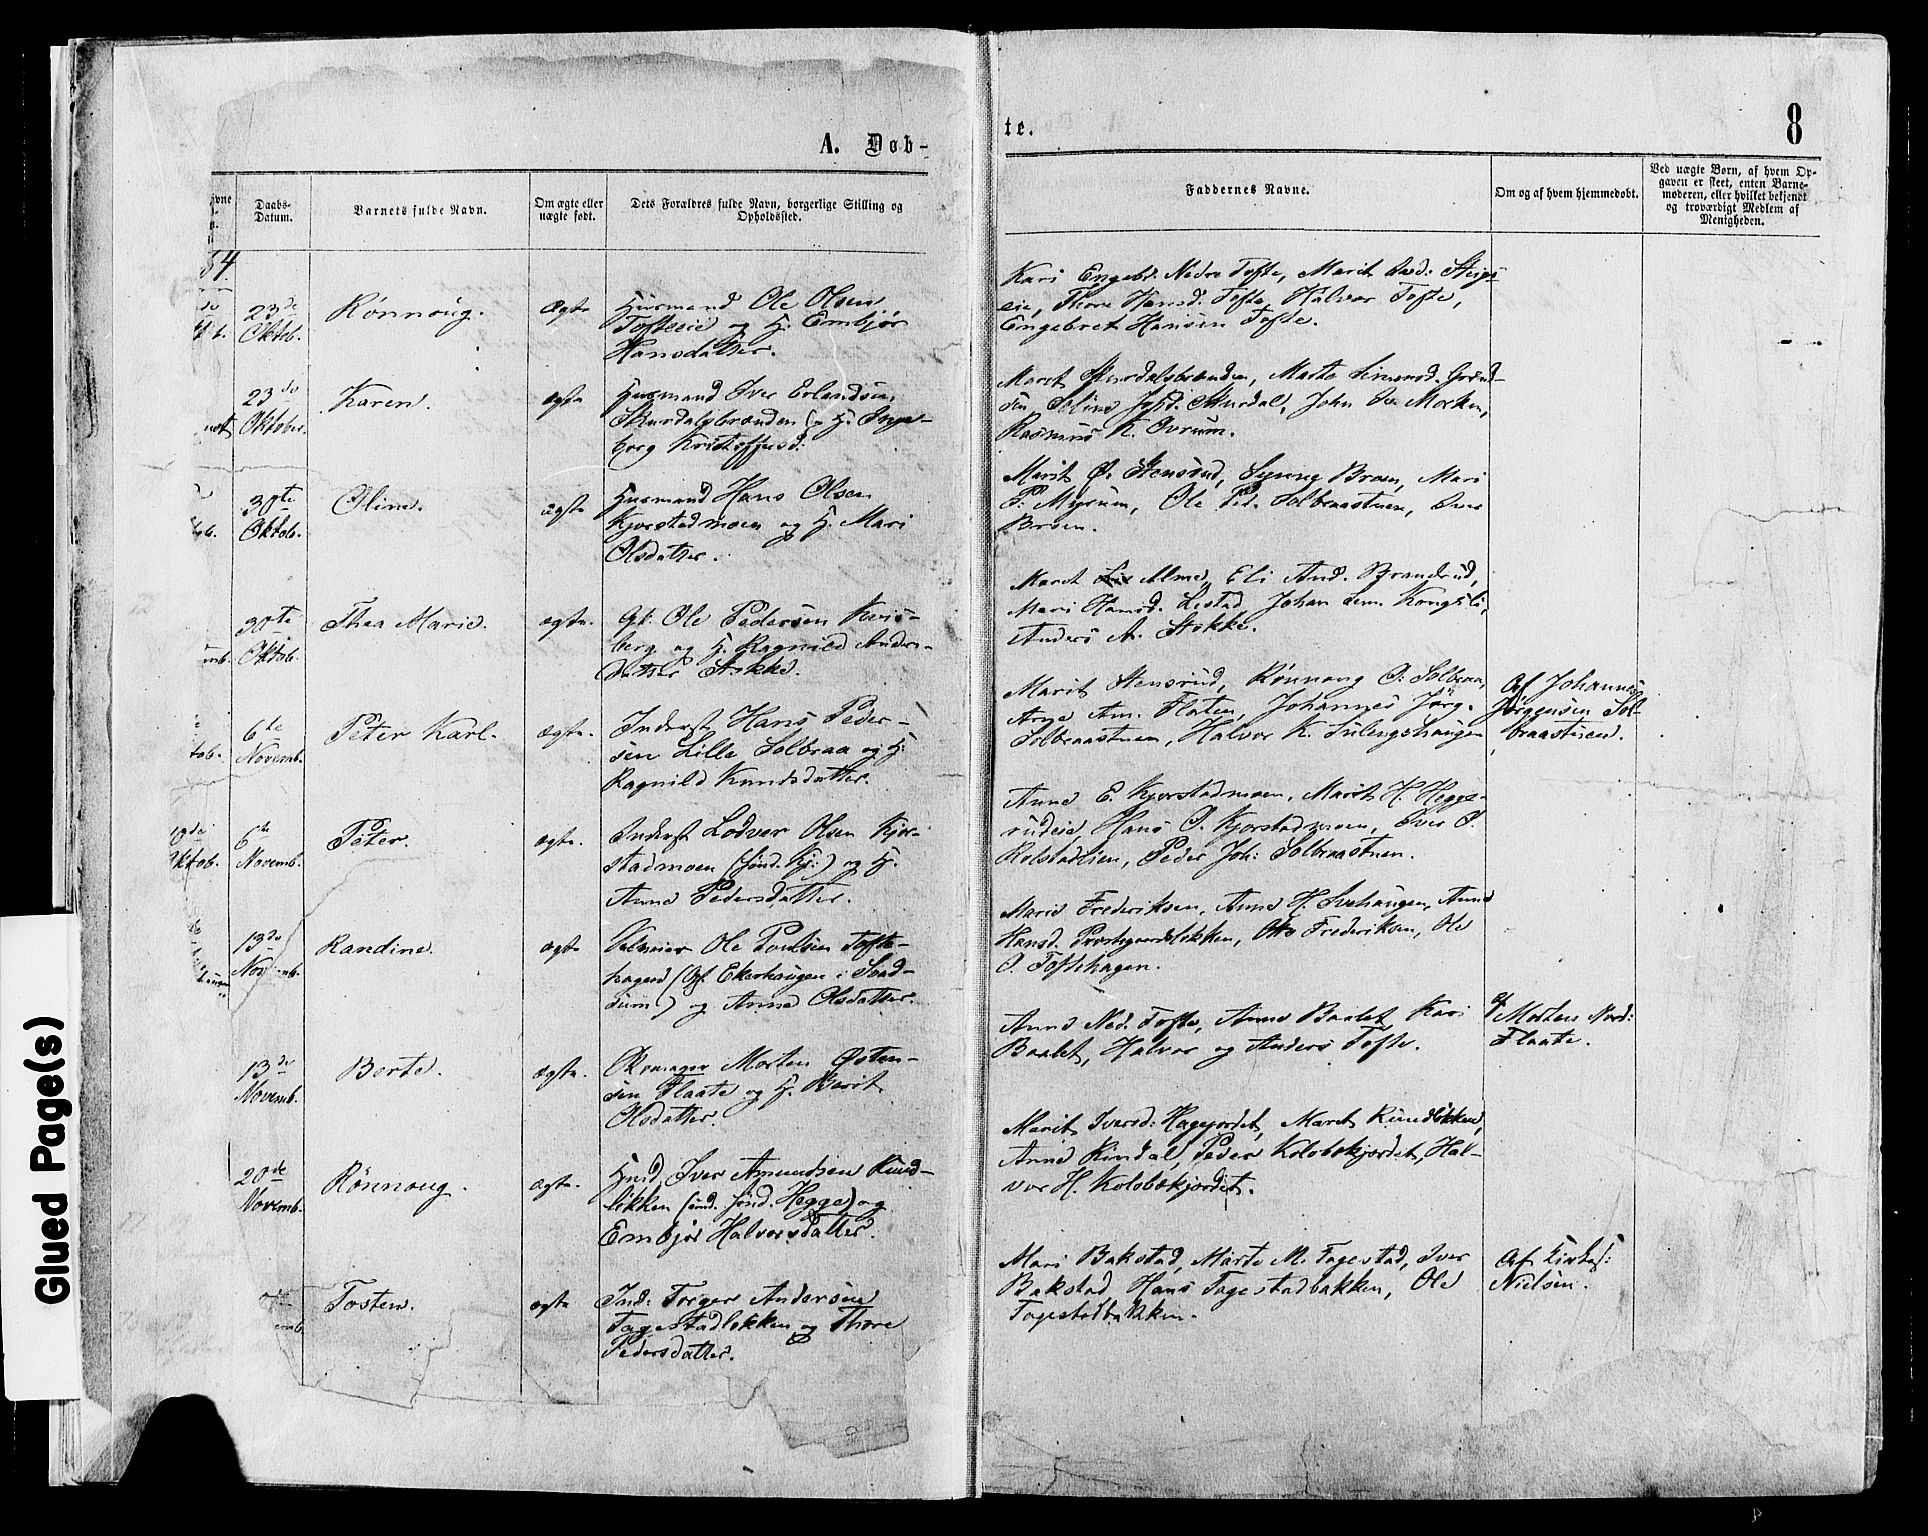 A. Døb-
te.
8
Daabs-
Datum.
Barnets fulde Navn.
Om ægte eller
uægte født.
Dets Forældres fulde Navn, borgerlige Stilling og
Opholdssted.
Faddernes Navne.
Om og af hvem hjemmedøbt.
Ved uægte Børn, af hvem Op-
gaven er skeet, enten Barne-
moderen, eller hvilket bekjendt
og troværdigt Medlem af
Menigheden.
23de
Oktob.
Rønnoug.
Ægte
Husmand Ole Olsen
Tofteeie og H. Embjør
Hansdatter.
Kari Engebd. Nedre Tofte, Marit
eie, Thore Hansd. Tofte, Halvor Tofte,
Engebret Hansen Tofte.
23de
Oktober.
Karen.
ægte
Husmand Iver Erlandsen
Skurdalsbrænden og H. Inge-
borg Kristoffersd.
Marit Skurdalsbrænden, Marte Simensd.
Skurdal, John Morken,
Rasmus K.
30te
Oktob.
Oline.
ægte
Husmand Hans Olsen
Kjorstadmoen og H. Mari
Olsdatter.
Marit O. Stensrud, Syning Broen, Mari
P. Myrum, Ole Ped. Solbraastuen, Iver
Broen.
30te
Oktob.
Thea Marie.
ægte.
Gt. Ole Pedersen Kvis-
berg og H. Ragnild Anders-
datter Stokke.
Marit Alme, Eli And. Brandrud,
Mari Hansd. Lestad Johan Sem. Kongsli,
Anders A. Stokke.
6te
Novemb.
Peter Karl.
Ægte.
Inderst Hans Peder-
sen Lille Solbraa og H.
Ragnild Knudsdatter.
Marit Stensrud, Rønnoug O. Solbraa,
Arne Am. Flaten, Johannes Jørg.
Solbraastuen, Halvor K.
Af Johannes
Jørgensen Sol-
braastuen.
6te
Novemb.
Peter.
ægte.
Inderst Lodver Olsen Kjor-
stadmoen (sønd. Kj:) og H.
Anne Pedersdatter.
Anne E. Kjorstadmoen, Marit H. Hegge-
rudeie, Hans O. Kjorstadmoen, Iver O.
Rolstadlien, Peder Joh: Solbraastuen.
13de
Randine.
ægte
Ole Poulsen Tofte-
hagen (Opf. Ekerhaugen i
) og Anne Olsdatter.
Marie Frederiksen, Anne H. Svehaugen, Anne
Hansd. Præstegaardsløkken, Otto Frederiksen, Ole
O. Toftehagen.
13de
Novemb.
Berte.
ægte.
Morten Østen-
sen Flaate og H. Berit
Olsdatter.
Anne Ned. Tofte, Anne Baalet, Kari
Baalet, Halvor og Anders Tofte.
af Morten Nord:
Flaate.
20de
Novemb.
Rønnoug.
ægte.
Husmd. Iver Amundsen Rund-
løkken (und. sønd. Hegge) og
Embjør Halvorsdatter.
Marit Iversd: Hagejordet, Marit Rundløkken,
Anne Rindal, Peder Kolobekjordet, Hal-
vor H. Kolobekjordet.
Tosten.
ægte
Ind: Torger Andersen
Fagestadløkken og Thore
Pedersdatter.
Mari Bakstad, Marte M. Fagestad, Iver
Bakstad, Hans Fagestadbakken, Ole
Fagestadbakken.
Af
Nielsen.
Glued Page(s)